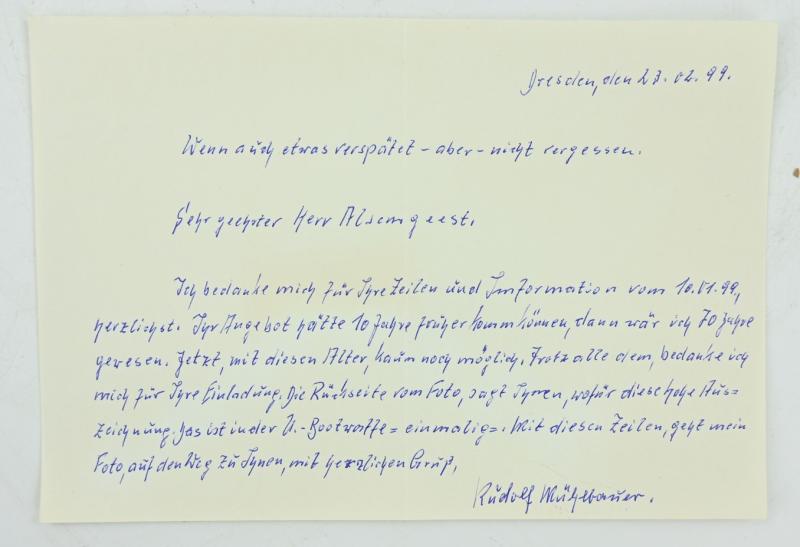 Dresden, den 23.02.99.
Wenn auch etwas verspätet – aber – nicht vergessen.
Sehr geehrter Herr Alsemgeest.
Ich bedanke mich für Ihre Zeilen und Imformation vom 10.01.99,
herzlichst. Ihr Angebot hätte 10 Jahre früher komm können, dann wär ich 70 Jahre
gewesen. Jetzt, mit diesen Alter, kaum noch möglich. Trotz alle dem, bedanke ich
mich für Ihre Einladung. Die Rückseite vom Foto, sagt Ihnen, wofür diese hohe Aus=
zeichnung. Das ist in der U.-Bootwaffe = einmalig =. Mit diesen Zeilen, geht mein
Foto, auf den Weg zu Ihnen, mit herzlichen Gruß,
Rudolf Mühlbauer.